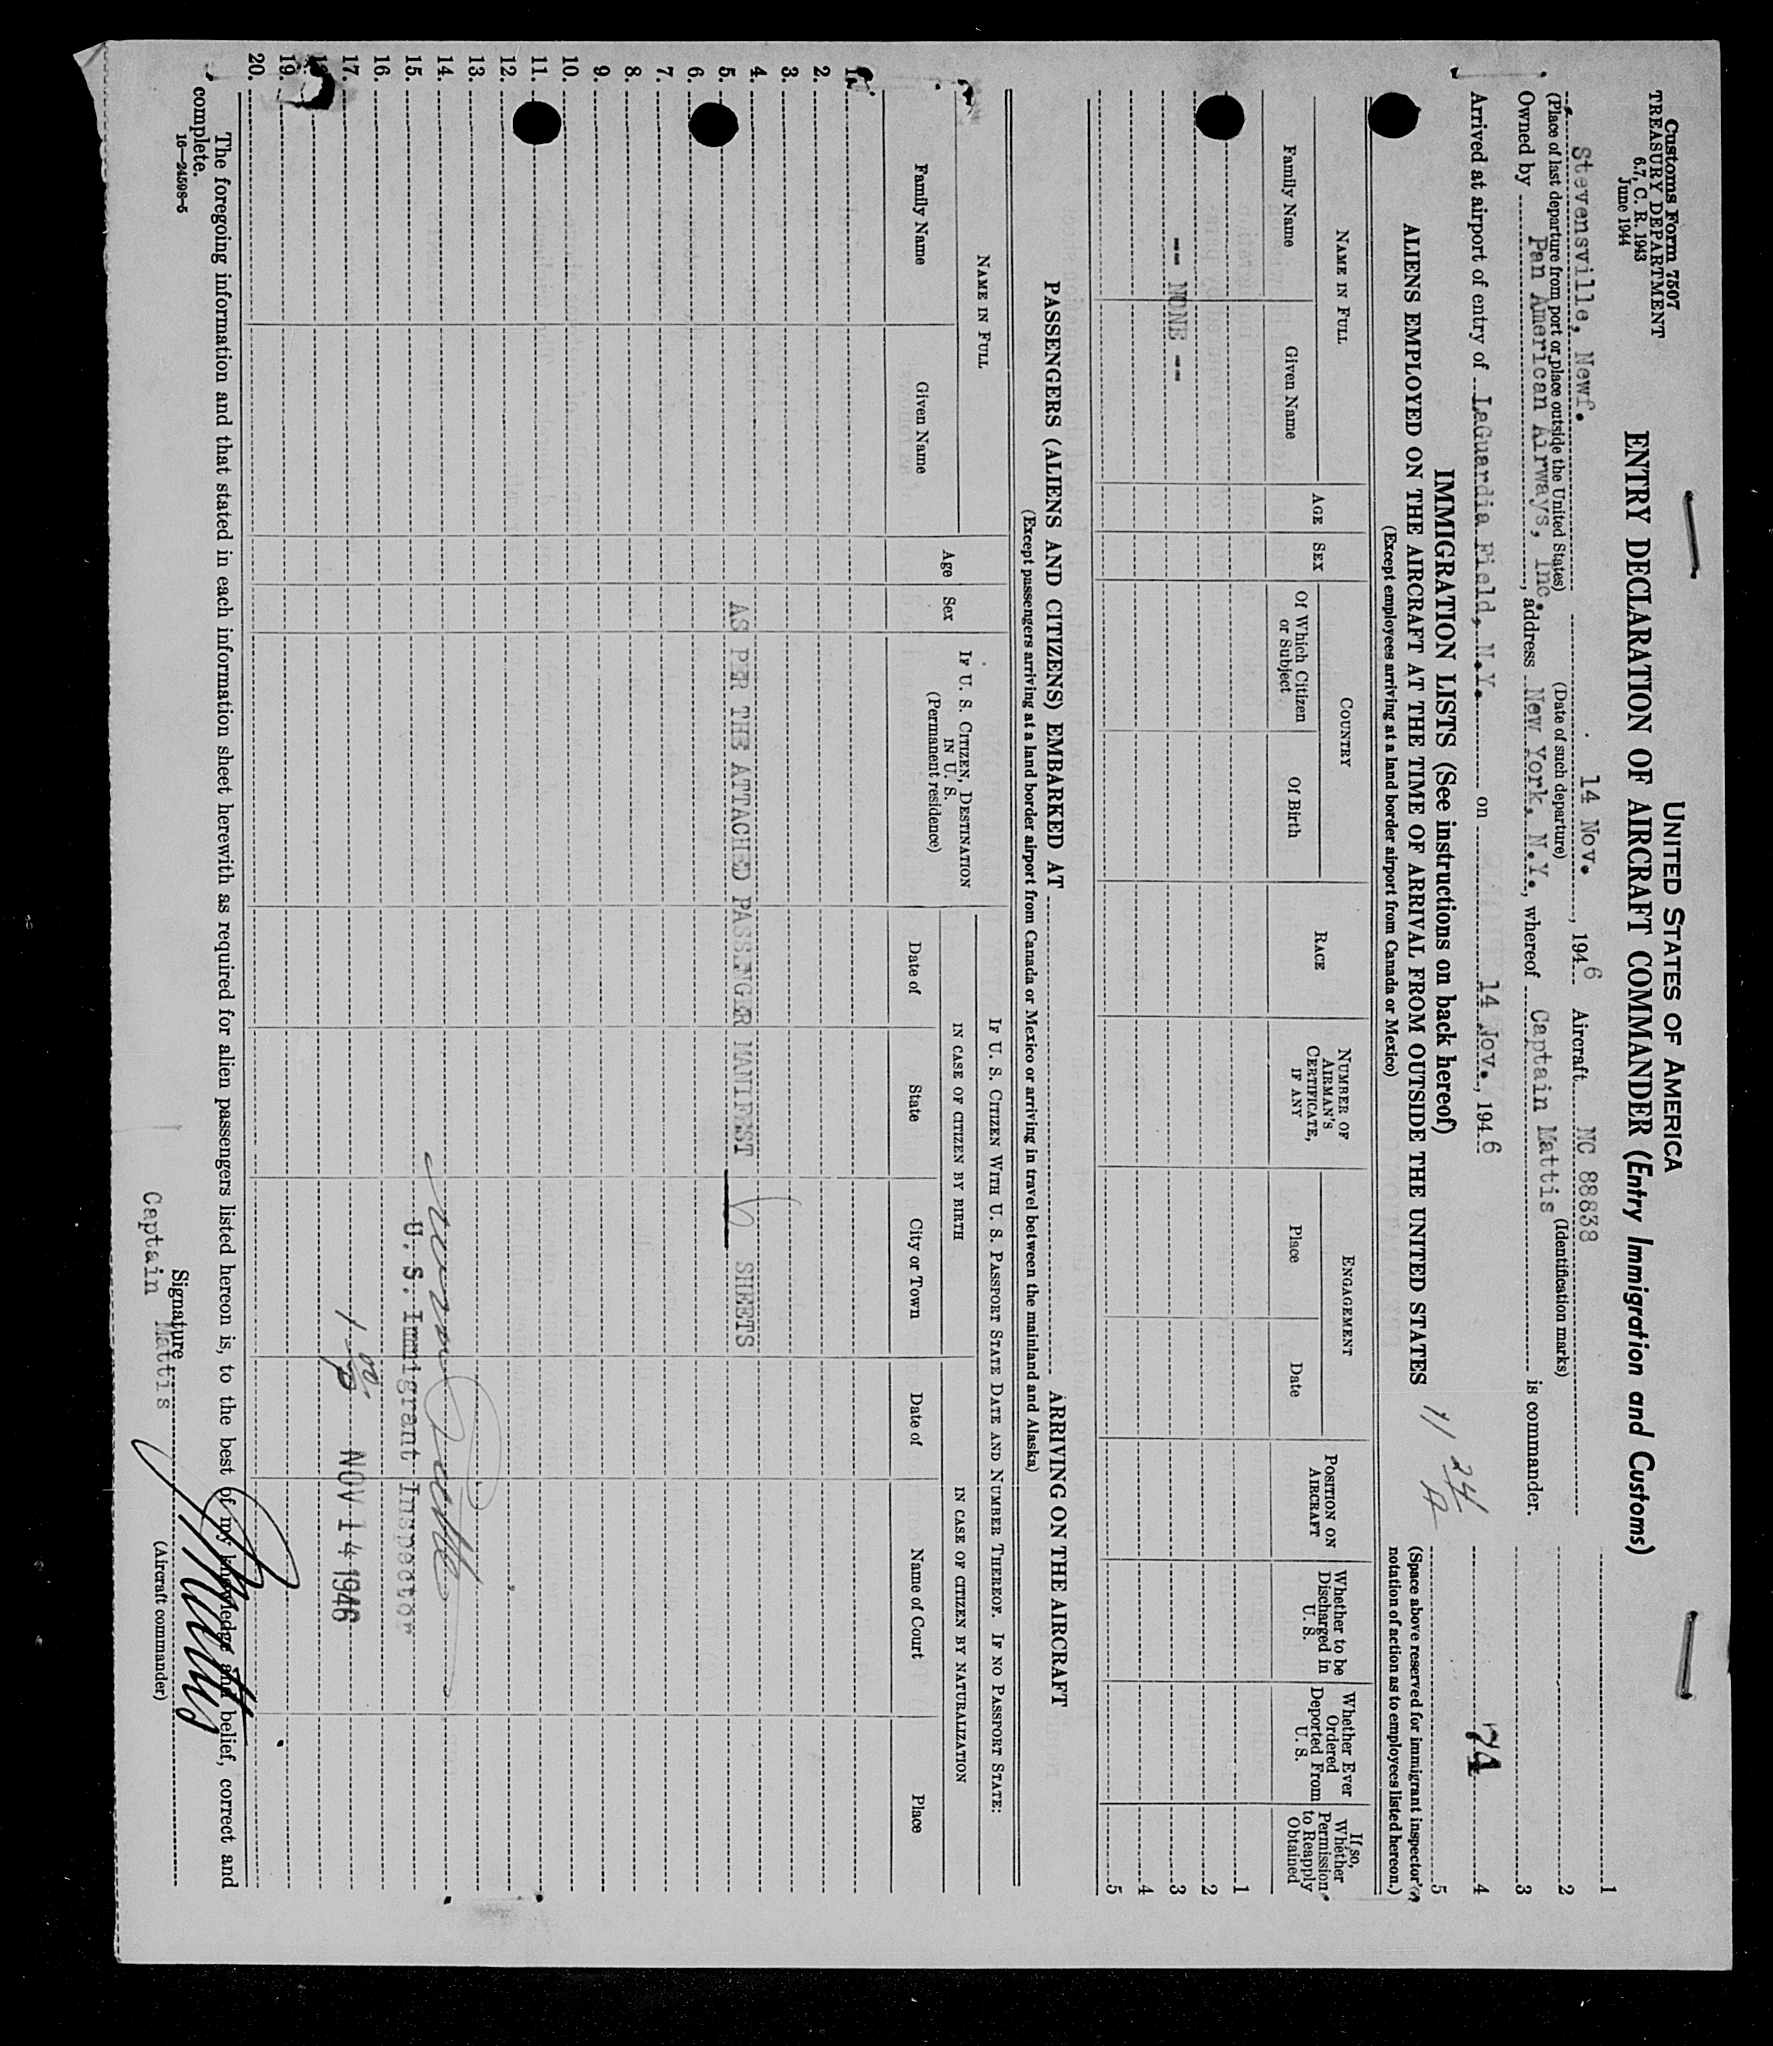 Customs Form 7507
TREASURY DEPARTMENT
6.7, C. R. 1943
June 1944
UNITED STATES OF AMERICA
ENTRY DECLARATION OF AIRCRAFT COMMANDER (Entry Immigration and Customs)
Stevensville, Newf. 14 Nov., 1946 Aircraft NC 88838
(Place of last departure from port or place outside the United States) (Date of such departure) (Identification marks)
Owned by Pan American Airways, Inc., address New York, N.Y., whereof Captain Mattis is commander.
Arrived at airport of entry of LaGuardia Field, N.Y. on 14 Nov., 1946
1
2
3
4
5
74
11 24
(Space above reserved for immigrant inspector's notation of action as to employees listed hereon.)
IMMIGRATION LISTS (See instructions on back hereof)
ALIENS EMPLOYED ON THE AIRCRAFT AT THE TIME OF ARRIVAL FROM OUTSIDE THE UNITED STATES
(Except employees arriving at a land border airport from Canada or Mexico)
NAME IN FULL
Family Name
Given Name
AGE
SEX
COUNTRY
Of Which Citizen or Subject
Of Birth
RACE
NUMBER OF AIRMAN'S CERTIFICATE, IF ANY
ENGAGEMENT
Place
Date
POSITION ON AIRCRAFT
Whether to be Discharged in U. S.
Whether Ever Ordered Deported From U. S.
If so, Whether Permission to Reapply Obtained
1
2
-- NONE -- 3
4
5
PASSENGERS (ALIENS AND CITIZENS) EMBARKED AT ARRIVING ON THE AIRCRAFT
(Except passengers arriving at a land border airport from Canada or Mexico or arriving in travel between the mainland and Alaska)
NAME IN FULL
Family Name
Given Name
Age
Sex
IF U. S. CITIZEN, DESTINATION IN U. S.
(Permanent residence)
IF U. S. CITIZEN WITH U. S. PASSPORT STATE DATE AND NUMBER THEREOF. IF NO PASSPORT STATE:
IN CASE OF CITIZEN BY BIRTH
IN CASE OF CITIZEN BY NATURALIZATION
Date of
State
City or Town
Date of
Name of Court
Place
1.
2.
3.
4.
5. AS PER THE ATTACHED PASSENGER MANIFEST SHEETS
6.
7.
8.
9.
10.
11.
12.
13.
14.
15. U. S. Immigrant Inspector
16.
17. NOV 14 1946
19.
20.
The foregoing information and that stated in each information sheet herewith as required for alien passengers listed hereon is, to the best of my knowledge and belief, correct and
complete.
16—24598-5
Signature
Captain Mattis
(Aircraft commander)